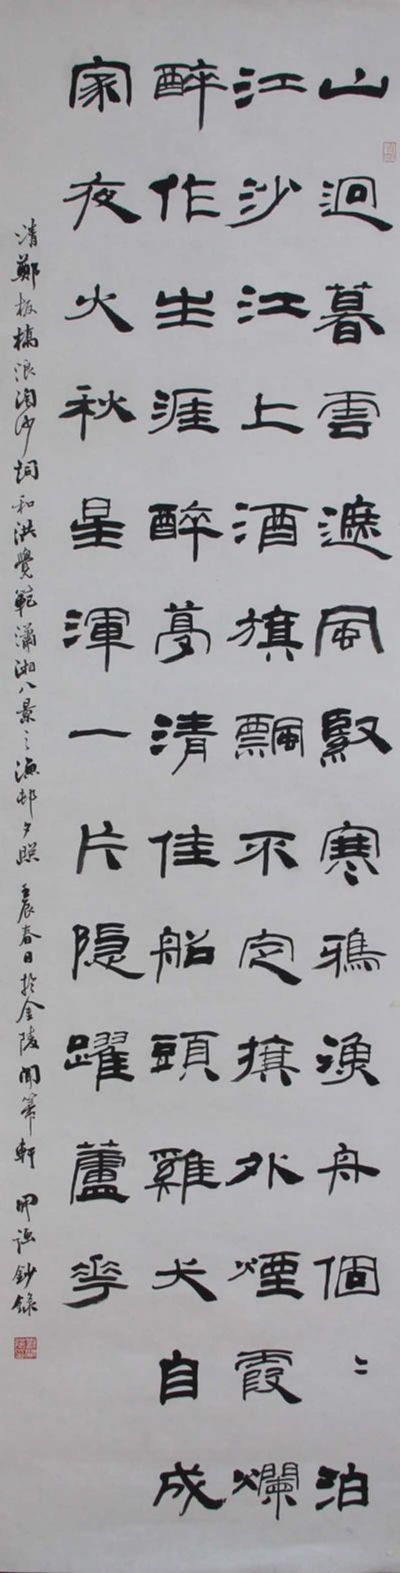 山迥暮雲遮風緊寒鴉漁舟個〻泊
江沙江上酒旗飄不定旗外煙霞爛
醉作生涯醉夢清佳船頭雞犬自成
家夜火秋星渾一片隐躍蘆花
清鄭板橋浪淘沙詞和洪覺範瀟湘八景之漁邨夕照 壬辰春日於金陵聞箏軒 鈔錄